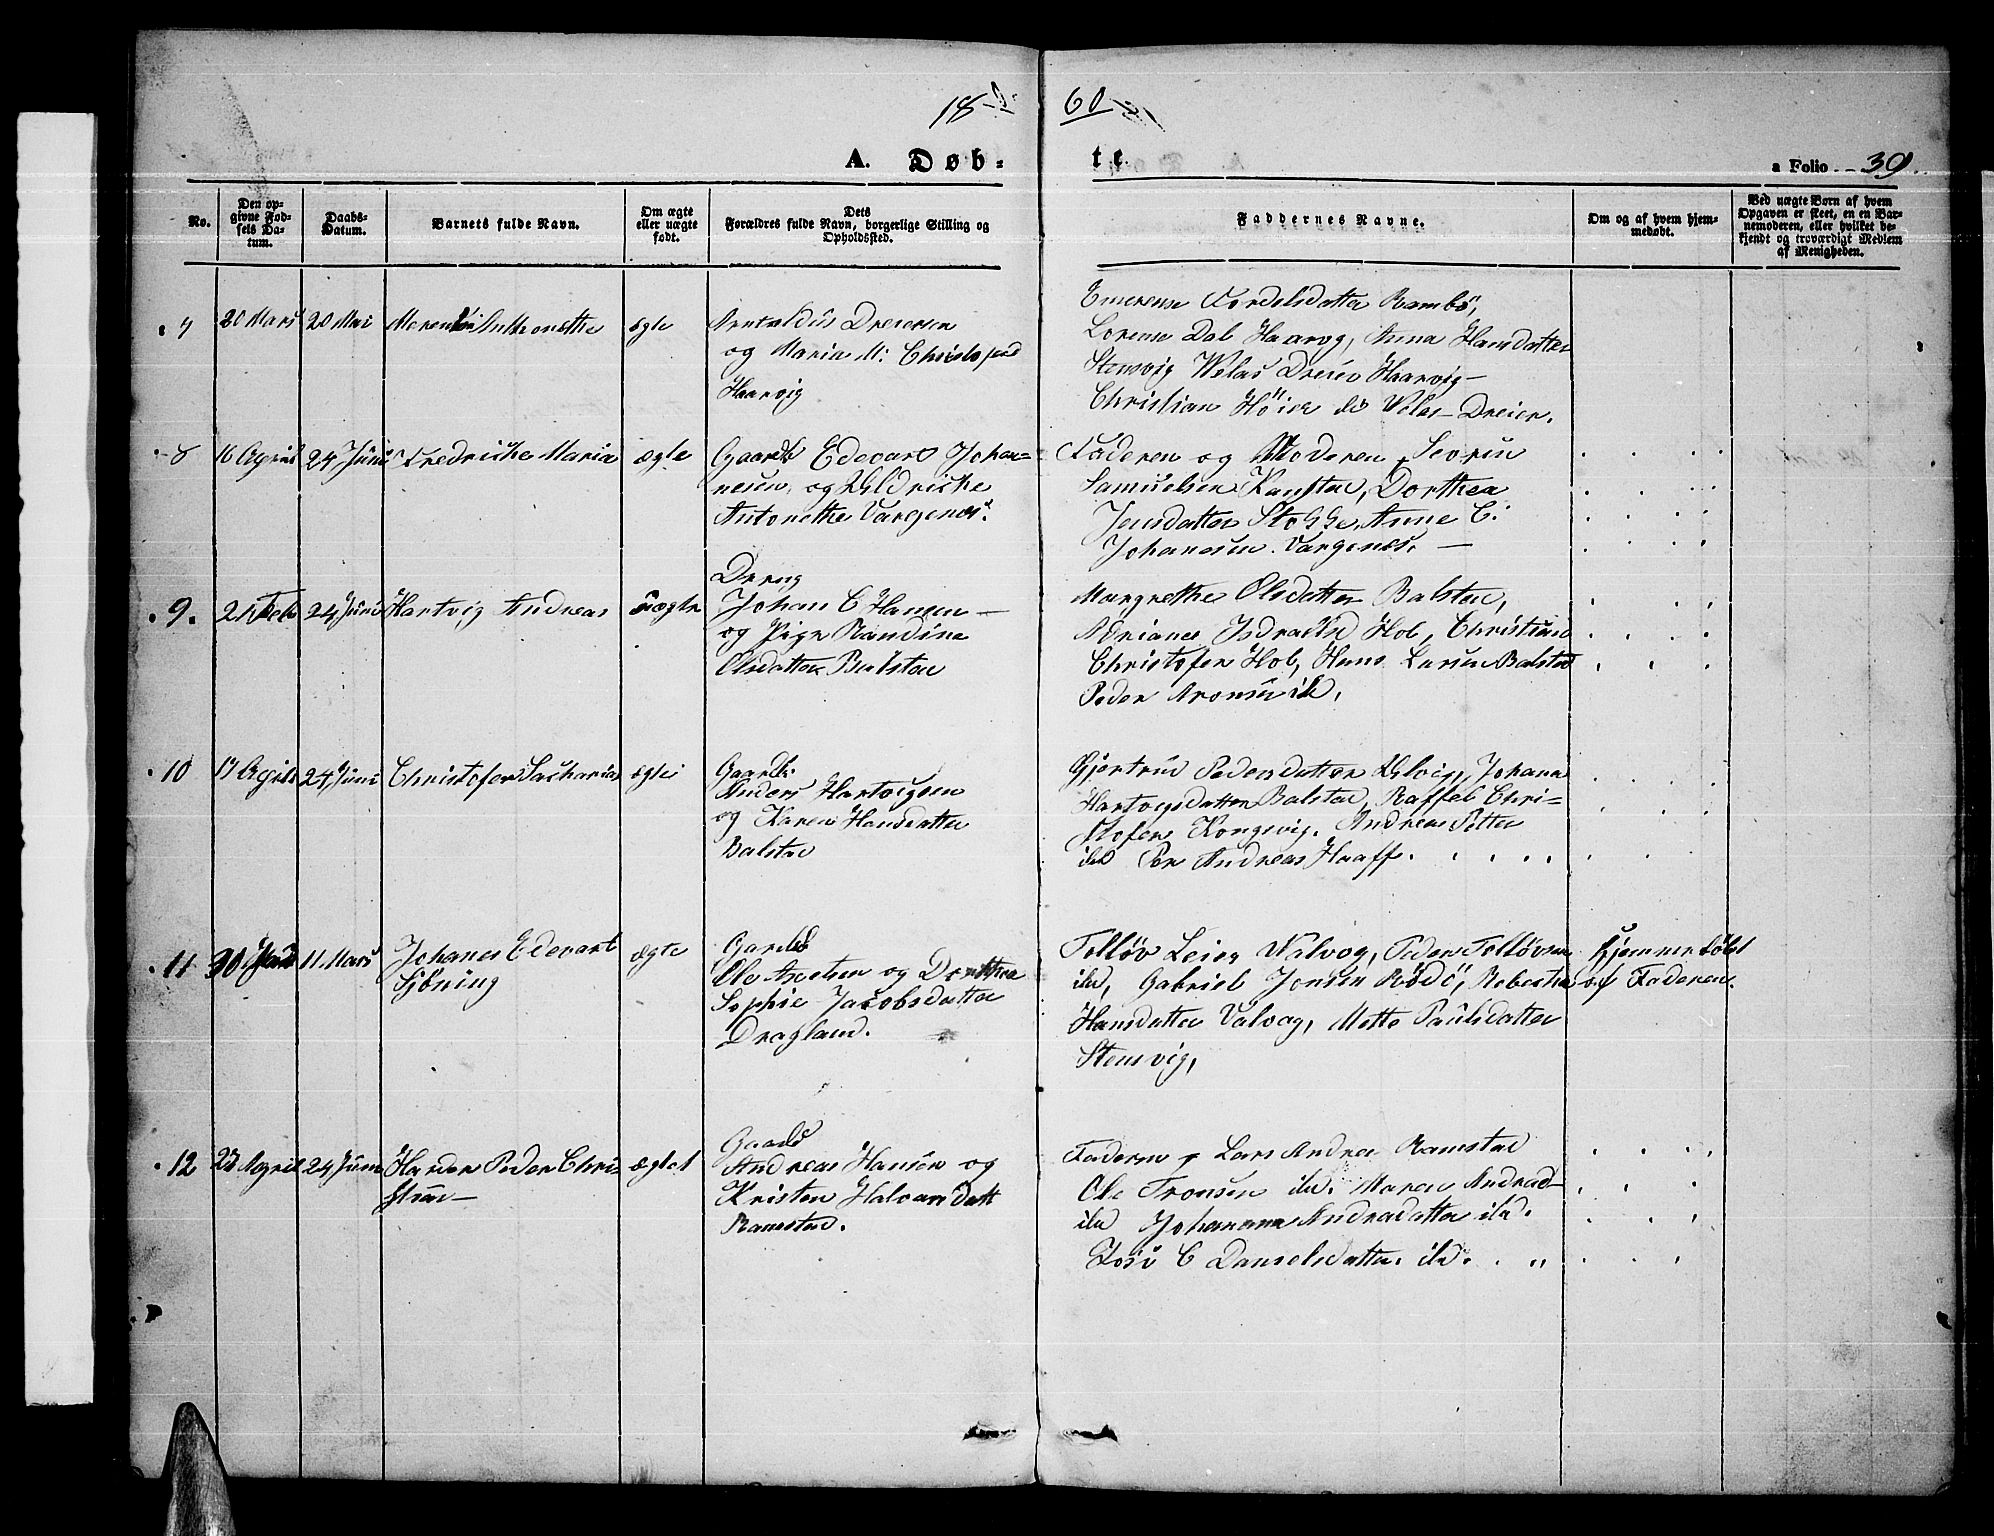 18
60
A. Døb-
te.
a Folio 39
No.
Den op-
givne Fød-
sels Da-
tum.
Daabs-
Datum.
Barnets fulde Navn.
Om ægte
eller uægte
født.
Dets
Forældres fulde Navn, borgerlige Stilling og
Opholdssted.
Faddernes Navne.
Om og af hvem hjem-
medøbt.
Ved uægte Børn af hvem
Opgaven er skeet, en en Bar-
nemoderen, eller hvilket be-
kjendt og troværdigt Medlem
af Menigheden.
7
20 Mars
20 Mai
ægte
og Maria M: Christopsd
Haarvig
Emerense Tordelsdatter Rambö,
Lorense Dal Haarvog, Anna Hansdatter
Stensvig Velas Dreier Haarvig
Christian Höier do Velas Dreier.
8
16 April
24 Juni
Fredricke Maria
ægte
Gaardb Edevart Johan=
nesen, og Uldricke
Antonethe Vargenæs.
Faderen og Moderen, Sevrin
Samuelsen Kanstad, Dorthea
Jensdatter Stokke, Anne C:
Johanesen Vargenæs.
9.
24 Feb
24 Juni
Hartvig Andreas
uægte
Dreng
Johan C Hansen
og Pige Randine
Olsdatter Balstad
Margrethe Olsdatter Balstad,
Adriance Isdraelsd Hol, Christian
Christofer Hol, Hans Larsen Balstad
Peder Aronsen ib.
10
17 April
24 Juni
Christofer Sacharias
ægte
Gaardb:
Anders Hartvigsen
og Karen Hansdatter
Balstad
Gjertrud Pedersdatter Ulvig, Johana
Hartvigsdatter Balstad, Raffel Chri=
stofer Kongsvig. Andreas Petter
ibd Per Andreas Haaff.
11
30 Jan
11 Mars
Johanes Edevart
Sjöning
ægte
Gardb
Ole Axelsen og Dorthea
Sophie Jacobsdatter
Dragland.
Tolløv Leier Valvog, Peder Tolløvsen
ibd, Gabriel Jonsen Rödö, Rebecka
Hansdatter Valvag, Mette Paulsdatter
Stensvig,
Hjemmedöbt
af Faderen.
12
27 April
24 Juni
ægte
Gaardb
Andreas Hansen og
Kristen Halvarsdatt
Ramstad.
Faderen, Lars Andrea Ramstad
Ole Tronsen ibd. Maren Andread
ibd Johanna Andradatter ibd.
C Danielsdatter ibd.